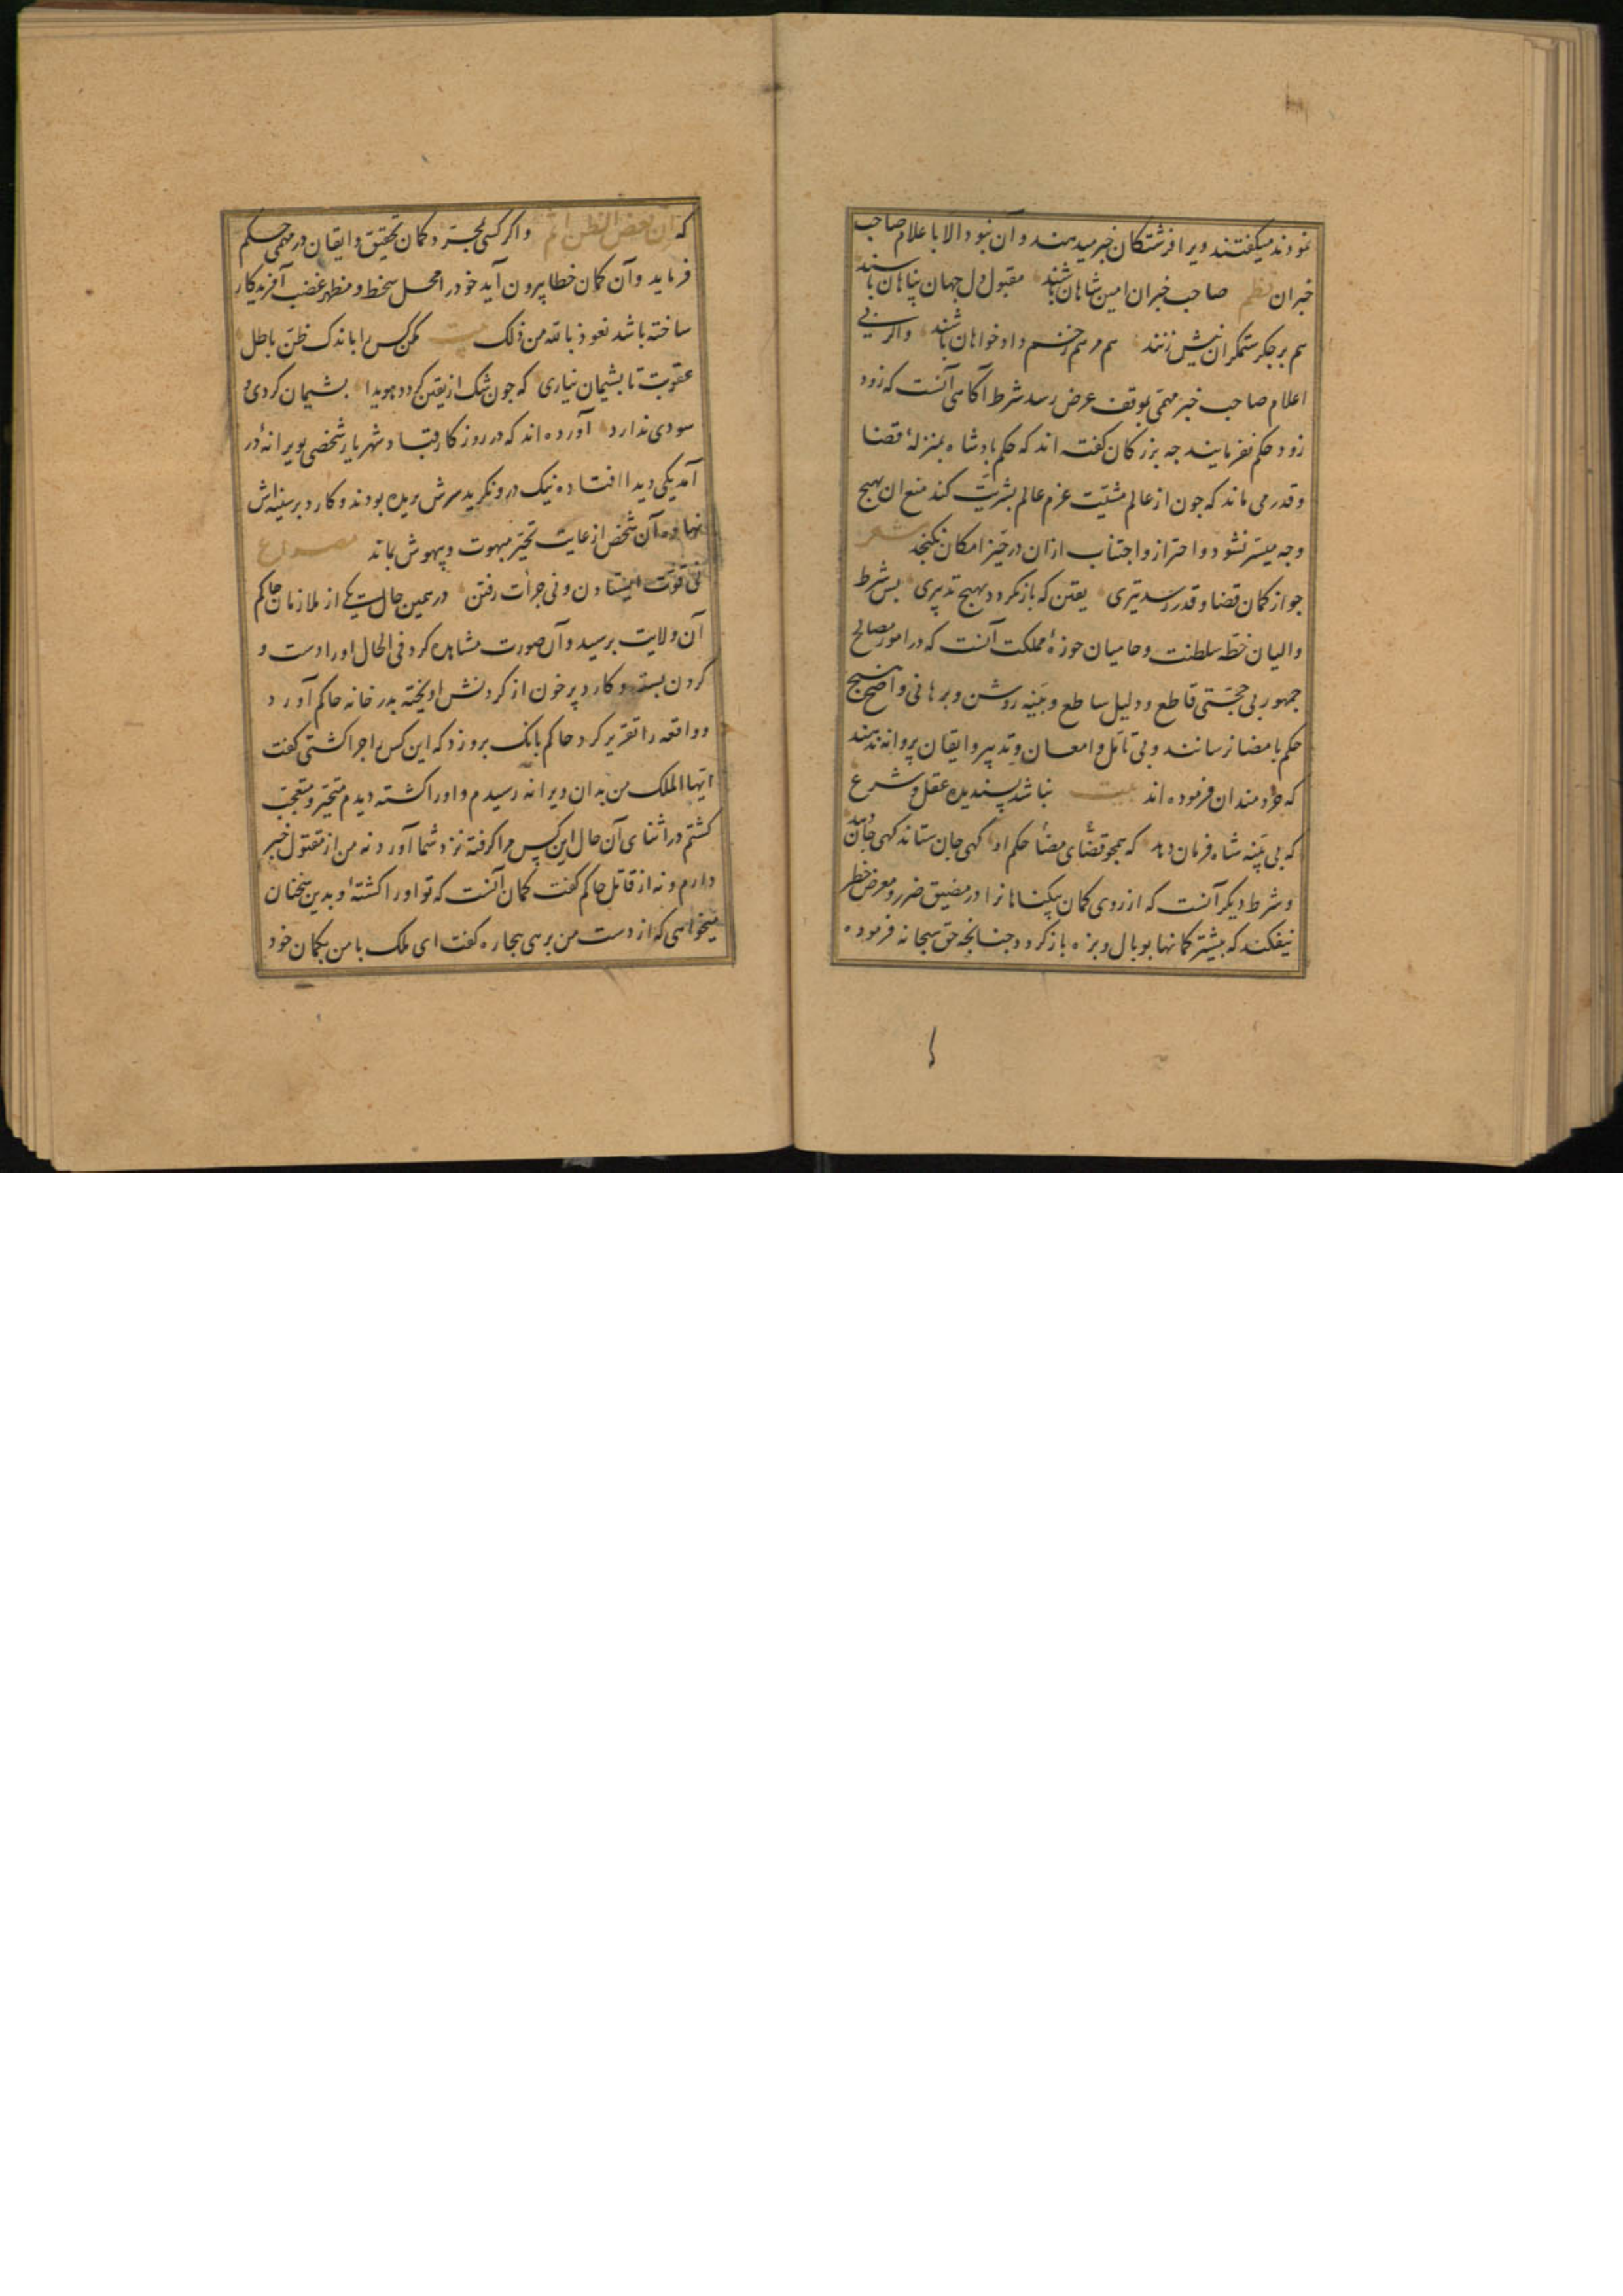 نمودند میکفتند ویرا فرشتکان خبر میدهند و آن نبود الا با علام صاحب
خبران نظم صاحب خبران امین شاهان باشند مقبول دل جهان پناهان باشند
هم بر جکر ستمکران نیش زنند هم مرهم زخم دادخواهان باشند و اکر بی
اعلام صاحب خبر مهمّی بموقف عرض رسد شرط آکاهی آنست که زود
زود حکم نفرمایند جه بزرکان کفته اند که حکم پادشاه بمنزلهٔ قضا
و قدر می ماند که جون از عالم مشیّت عزم عالم بشریّت کند منع ان بهیج
وجه میسّر نشود و احتراز و اجتناب ازان در حیّز امکان نکنجد شعر
جو از کمان قضا و قدر رسد تیری یقین که باز نکردد بهیج تدبیری بس شرط
والیان خطّه سلطنت و حامیان حوزهٔ مملکت آنست که در امور مصالح
جمهور بی حجّتی قاطع و دلیل ساطع و بیّنه روشن و برهانی واضح هیج
حکم بامضا نرسانند و بی تامّل و امعان و تدبیر و ایقان پروانه ندهند
که خردمندان فرموده اند بیت نباشد پسندیده عقل و شرع
که بی بیّنه شاه فرمان دهد که همجو قضای مضا حکم او کهی جان ستاند کهی جان دهد
و شرط دیکر آنست که از روی کمان بیکناهانرا در مضیق ضرر و معرض خطر
نیفکند که بیشتر کمانها بوبال و بزه باز کردد جنانجه حق سبحانه فرموده
که ان بعض الظن اثم و اکر کسی بمجرّد کمان تحقیق و ایقان در مهمی حکم
فرماید و آن کمان خطا بیرون آید خود را محل سخط و مظهر غضب آفریدکار
ساخته باشد نعوذ بالله من ذلک بیت مکن کس را باندک ظنّ باطل
عقوبت تا بشیمان نیاری که جون شک از یقین کردد هویدا بشیمان کردی و
سودی ندارد آورده اند که در روزکار قباد شهریار شخصی بویرانهٔ در
آمد یکی دید افتاده نیک درو نکرید سرش بریده بودند و کارد بر سینه اش
نهاده آن شخص از غایت تحیّر مبهوت و بیهوش بماند مصراع
نی قوّت ایستادن و نی جرأت رفتن در همین حالت یکی از ملازمان حاکم
آن ولایت برسید و آن صورت مشاهده کرد فی الحال او را دست و
کردن بسته و کارد پر خون از کردنش اویخته بدر خانه حاکم آورد
و واقعه را تقریر کرد حاکم بانک برو زد که این کس را جرا کشتی کفت
ایّها الملک من بدان ویرانه رسیدم و او را کشته دیدم متحیّر و متعجّب
کشتم در اثنای آن حال این کس مرا کرفته نزد شما آورد نه من از مقتول خبر
دارم و نه از قاتل حاکم کفت کمان آنست که تو او را کشتهٔ و بدین سخنان
میخواهی که از دست من برهی بیجاره کفت ای ملک با من بکمان خود